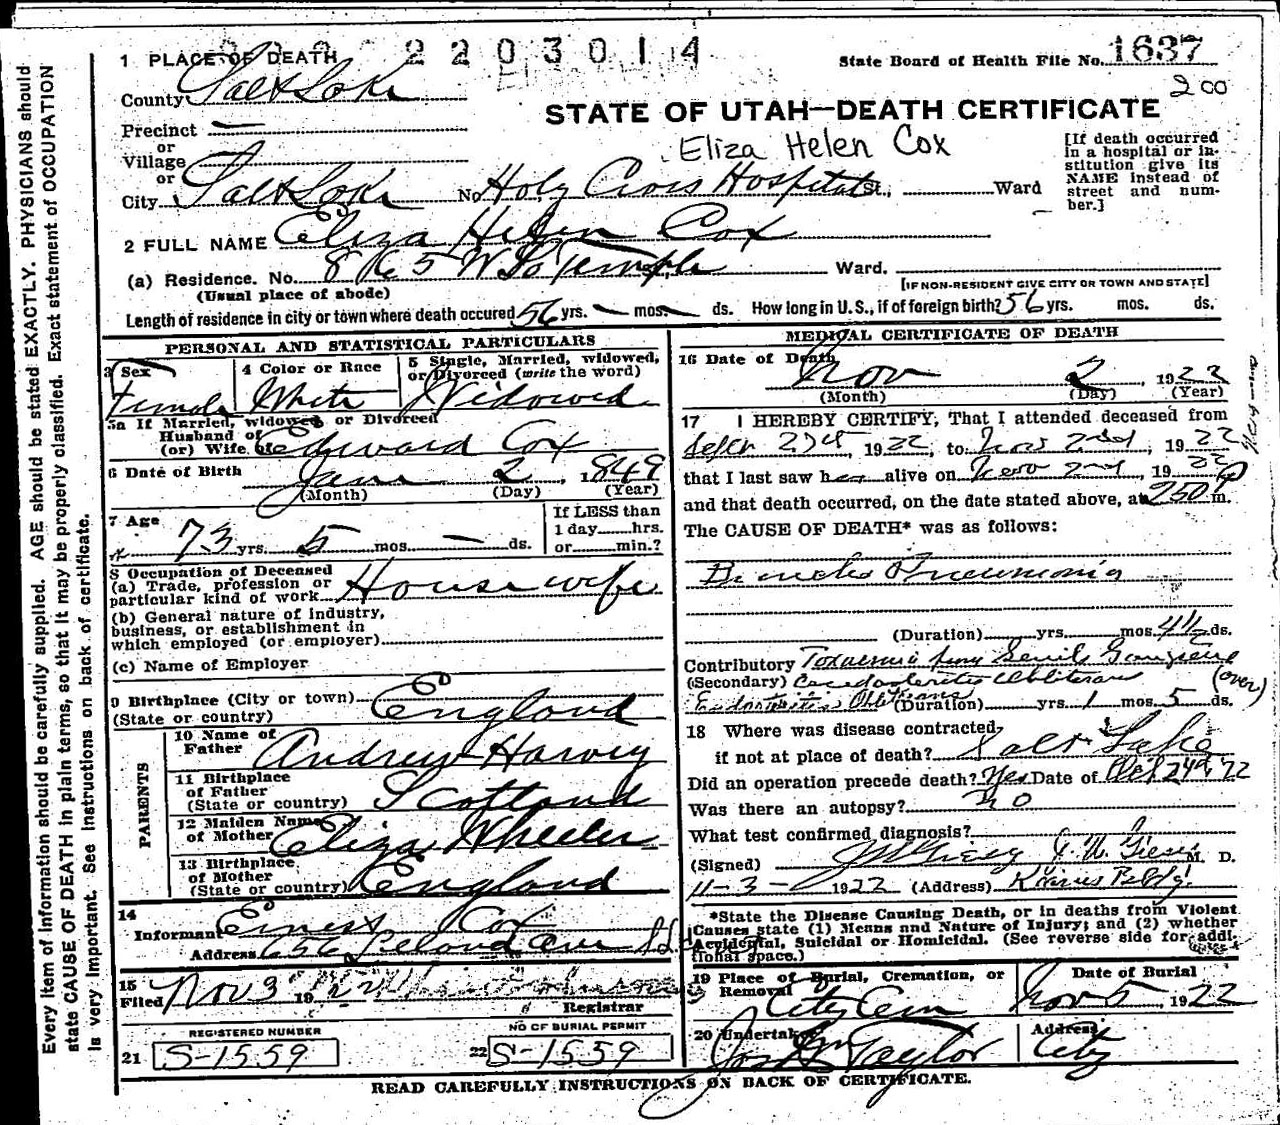 2203014
1 PLACE OF DEATH
State Board of Health File No. 1637
County Salt Lake
200
STATE OF UTAH—DEATH CERTIFICATE
Precinct —
or
Village
or
Eliza Helen Cox
[If death occurred in a hospital or institution give its NAME instead of street and number.]
City Salt Lake No. Holy Cross Hospital St., Ward
2 FULL NAME Eliza Helen Cox
(a) Residence. No. 865 W So Temple Ward.
(Usual place of abode)
[IF NON-RESIDENT GIVE CITY OR TOWN AND STATE]
Length of residence in city or town where death occured 56 yrs. — mos. — ds. How long in U.S., if of foreign birth? 56 yrs. mos. ds.
PERSONAL AND STATISTICAL PARTICULARS
3 Sex
Female
4 Color or Race
White
5 Single, Married, widowed, or Divorced (write the word)
Widowed
5a If Married, widowed or Divorced
Husband of
(or) Wife of Edward Cox
6 Date of Birth Jan 2, 1849
(Month) (Day) (Year)
7 Age
73 yrs. 5 mos. — ds.
If LESS than
1 day hrs.
or min.?
8 Occupation of Deceased
(a) Trade, profession or
particular kind of work Housewife
(b) General nature of industry,
business, or establishment in
which employed (or employer)
(c) Name of Employer
9 Birthplace (City or town)
(State or country) England
PARENTS
10 Name of
Father Andrew Harvey
11 Birthplace
of Father
(State or country) Scotland
12 Maiden Name
of Mother Eliza Wheeler
13 Birthplace
of Mother
(State or country) England
14
Informant Ernest Cox
Address 656 Leland Ave
15
Filed Nov 3 1922
Registrar
REGISTERED NUMBER
21 S-1559
NO OF BURIAL PERMIT
22 S-1559
MEDICAL CERTIFICATE OF DEATH
16 Date of Death
Nov 2, 1922
(Month) (Day) (Year)
17 I HEREBY CERTIFY, That I attended deceased from
Sept 23rd, 1922, to Nov 2nd, 1922
that I last saw her alive on Nov 2nd, 1922
and that death occurred, on the date stated above, at 250 P m.
The CAUSE OF DEATH* was as follows:
Broncho Pneumonia
(Duration) yrs. mos. 4½ ds.
Contributory Toxaemia from Senile Gangrene
(Secondary) Obliterans (over)
Endarteritis Obliterans (Duration) yrs. 1 mos. 5 ds.
18 Where was disease contracted,
if not at place of death? Salt Lake
Did an operation precede death? Yes Date of 24th, 22
Was there an autopsy? no
What test confirmed diagnosis?
(Signed) M. D.
11-3- 1922 (Address) Bldg.
*State the Disease Causing Death, or in deaths from Violent
Causes state (1) Means and Nature of Injury; and (2) whether
Accidental, Suicidal or Homicidal. (See reverse side for addi-
tional space.)
19 Place of Burial, Cremation, or
Removal City Cem
Date of Burial
Nov 5, 1922
20 Undertaker
Jos Wm Taylor
Address
City
READ CAREFULLY INSTRUCTIONS ON BACK OF CERTIFICATE.
Every item of information should be carefully supplied. AGE should be stated EXACTLY. PHYSICIANS should
state CAUSE OF DEATH in plain terms, so that it may be properly classified. Exact statement of OCCUPATION
is very important. See Instructions on back of certificate.